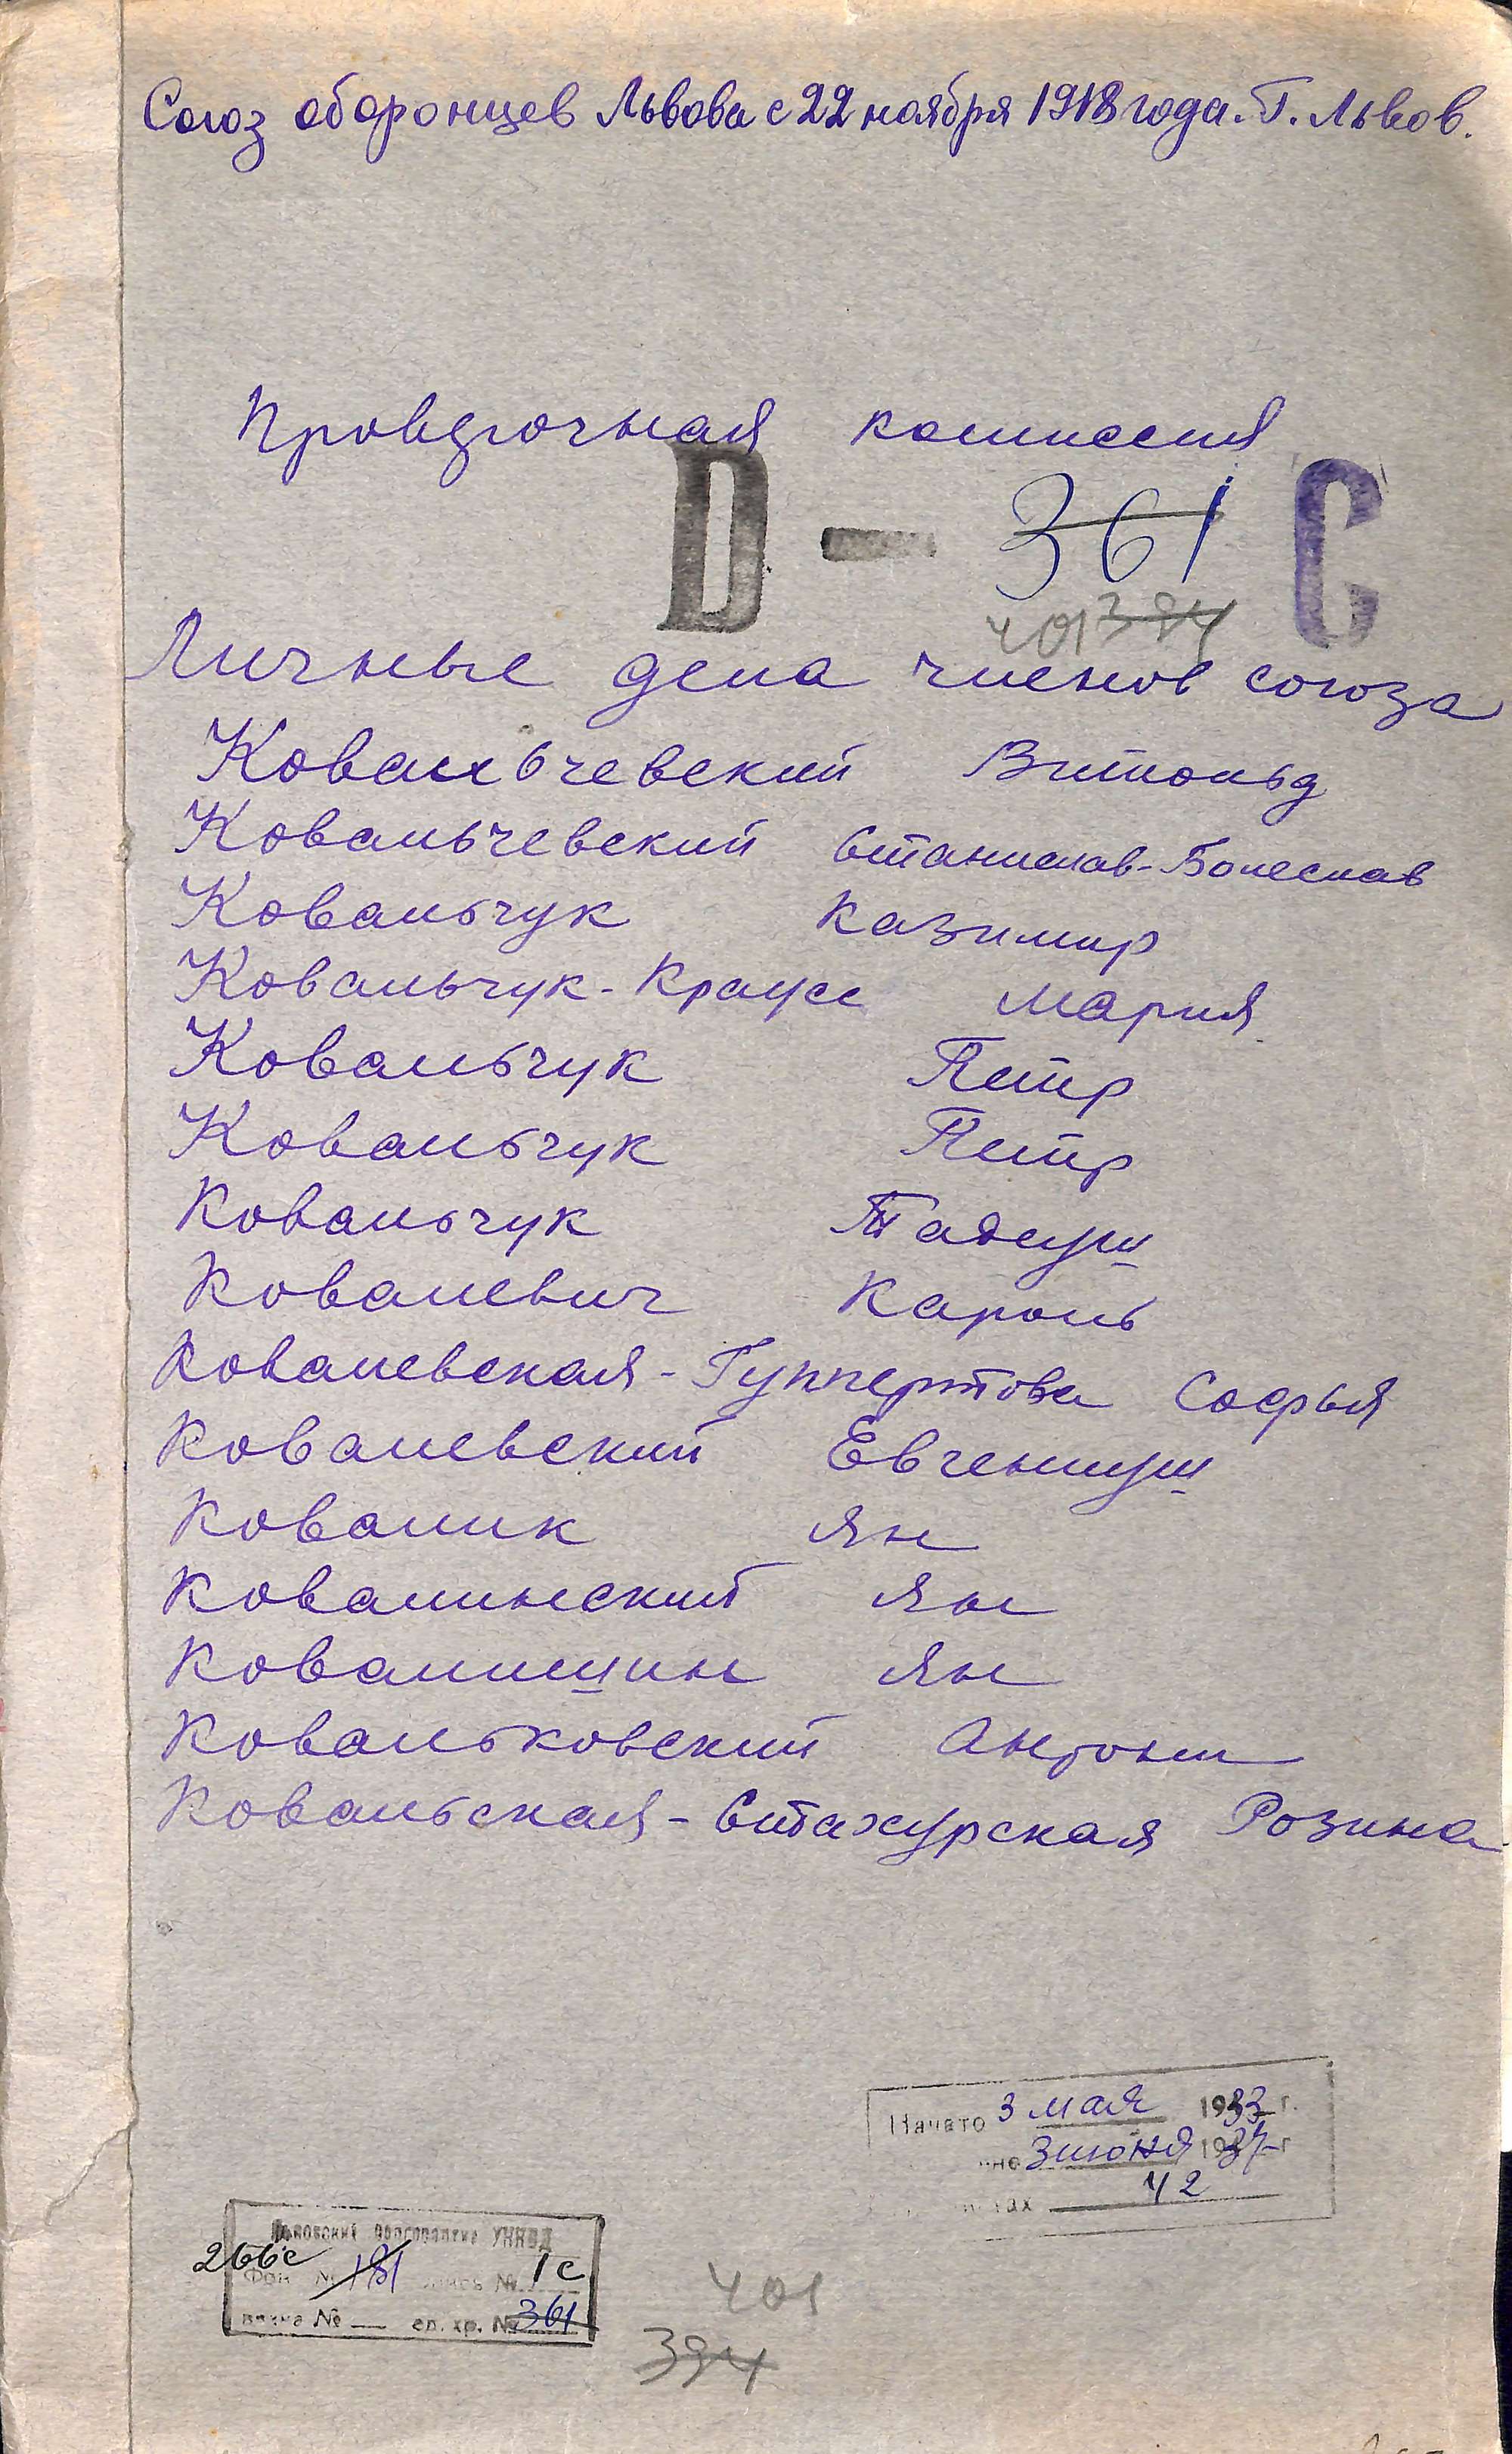 Союз оборонцев Львова с 22 ноября 1918 года. Г. Львов.
Проверочная комиссия
D — 361 C
401 394
Личные дела членов союза
Ковальчевский Витольд
Ковальчевский Станислав-Болеслав
Ковальчук Казимир
Ковальчук-Краусе Мария
Ковальчук Петр
Ковальчук Петр
Ковальчук Тадеуш
Ковалевич Кароль
Ковалевская-Гуппертова Софья
Ковалевский Евгениуш
Ковалик Ян
Ковалинский Ян
Ковалишин Ян
Ковальковский Антони
Ковальская-Стахурская Розина
Начато 3 мая 1933 г.
3 июня 1937 г
42
Львовский УНКВД
266с Фонд № 181 опись № 1с
вязка № — ед. хр. № 361
401
394